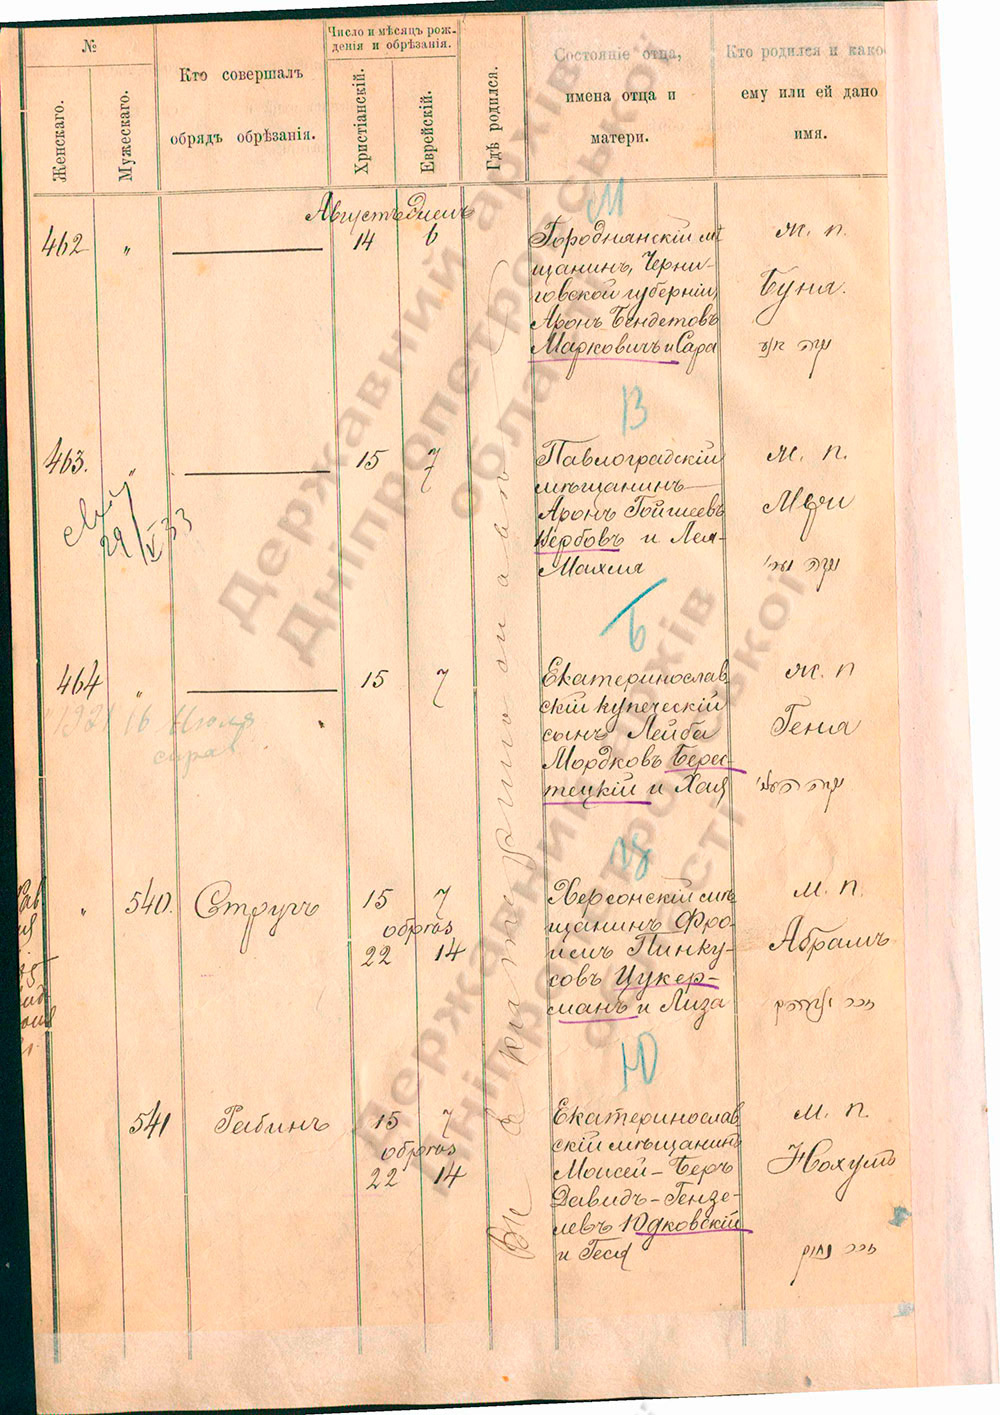 №
Женскаго.
Мужескаго.
Кто совершалъ
обрядъ обрѣзанія.
Число и мѣсяцъ рож-
денія и обрѣзанія.
Христіанскій.
Еврейскій.
Гдѣ родился.
Состояніе отца,
имена отца и
матери.
Кто родился и како
ему или ей дано
имя.
Августъ
Въ Екатеринославѣ
М
462 " 14 6
Городнянскій мѣ
щанинъ, Черни-
говской губерніи,
Аронъ Бендетовъ
Марковичъ и Сара
ж. п.
Буня.
В
463. " 15 7
29/V 33
Павлоградскій
мѣщанинъ
Аронъ
Вербовъ и Лея-
ж. п.
Б
464 " 15 7
1921 16 Июля
справ.
Екатеринослав
скій купеческій
сынъ Лейба
Мордковъ Берес-
тецкій и Хая
ж. п
Геня
" 540. Стругъ 15 7
обрѣз
22 14
Херсонскій мѣ
щанинъ Фро-
имъ Пинку-
совъ Цукер-
манъ и Лиза
м. п.
Абрамъ
Ю
541 Рабинъ 15 7
обрѣз
22 14
Екатеринослав
скій мѣщанинъ
Моисей-Беръ
Давидъ-Гензе-
левъ Юдковскій
и Геся
м. п.
Нохумъ
Державний архів
Дніпропетровської
області
Державний архів
Дніпропетровської
області